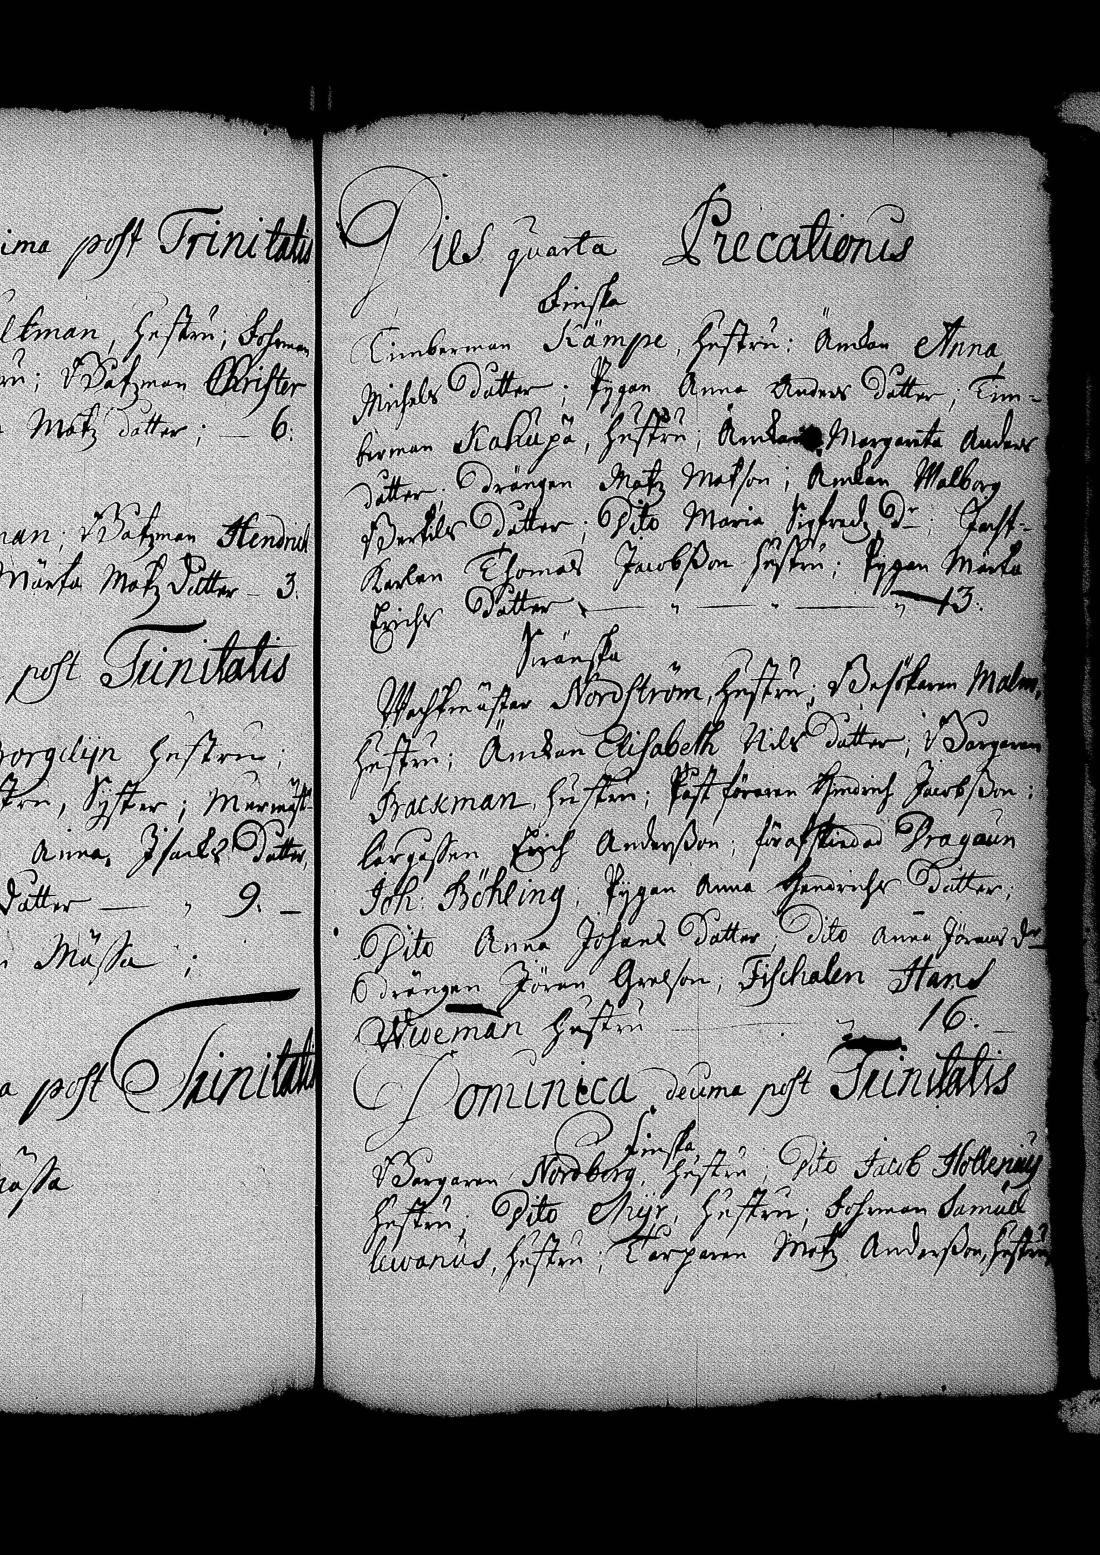 ima post Trinitatis
ltman, hustru; Fohrman
ru; Båtzman Christer
Matz dotter; — 6.
man; Båtzman Hendrich
Märta Matz Dotter — 3.
post Trinitatis
Borgelijn hustru;
stru, Syster;
Anna Isacks Dotter,
Dotter — " 9. —
Mässa ;
a post Trinitatis
Mässa
Dies quarta Precationis
Finska
Timberman Kämpe, hustru; Änkan Anna
Michels Dotter; Pygan Anna Anders Dotter, Tim-
berman Kakupä, hustru; Änkan Margareta Anders
dotter; Drängen Matz Matson; Änkan Walborg
Bertils Dotter; Dito Maria Sigfredz Dr;
Karlen Thomas Jacobßon hustru; Pygan Märta
Erichs Dotter — " — " — " 13.
Swänska
Wachtmästar Nordström, hustru; Besökaren Malm,
hustru; Änkan Elisabeth Nils dotter; Borgaren
Brackman, hustru; Postföraren Hindrich Jacobßon;
Erich Anderßon; förafskiedad Dragoun
Joh: Böhling; Pygan Anna Hendrichs Dotter;
Dito Anna Johans Dotter; Dito Anna Jörans Dr
Drängen Jöran Grelson; Fischalen Hans
Wideman hustru — " 16. —
Dominica decima post Trinitatis
Finska
Borgaren Nordborg, hustru; Dito Jacob Hollenius
hustru; Dito Myr, hustru; Fohrman Samuel
Lewanus, hustru; Torparen Matz Anderßon, hustru